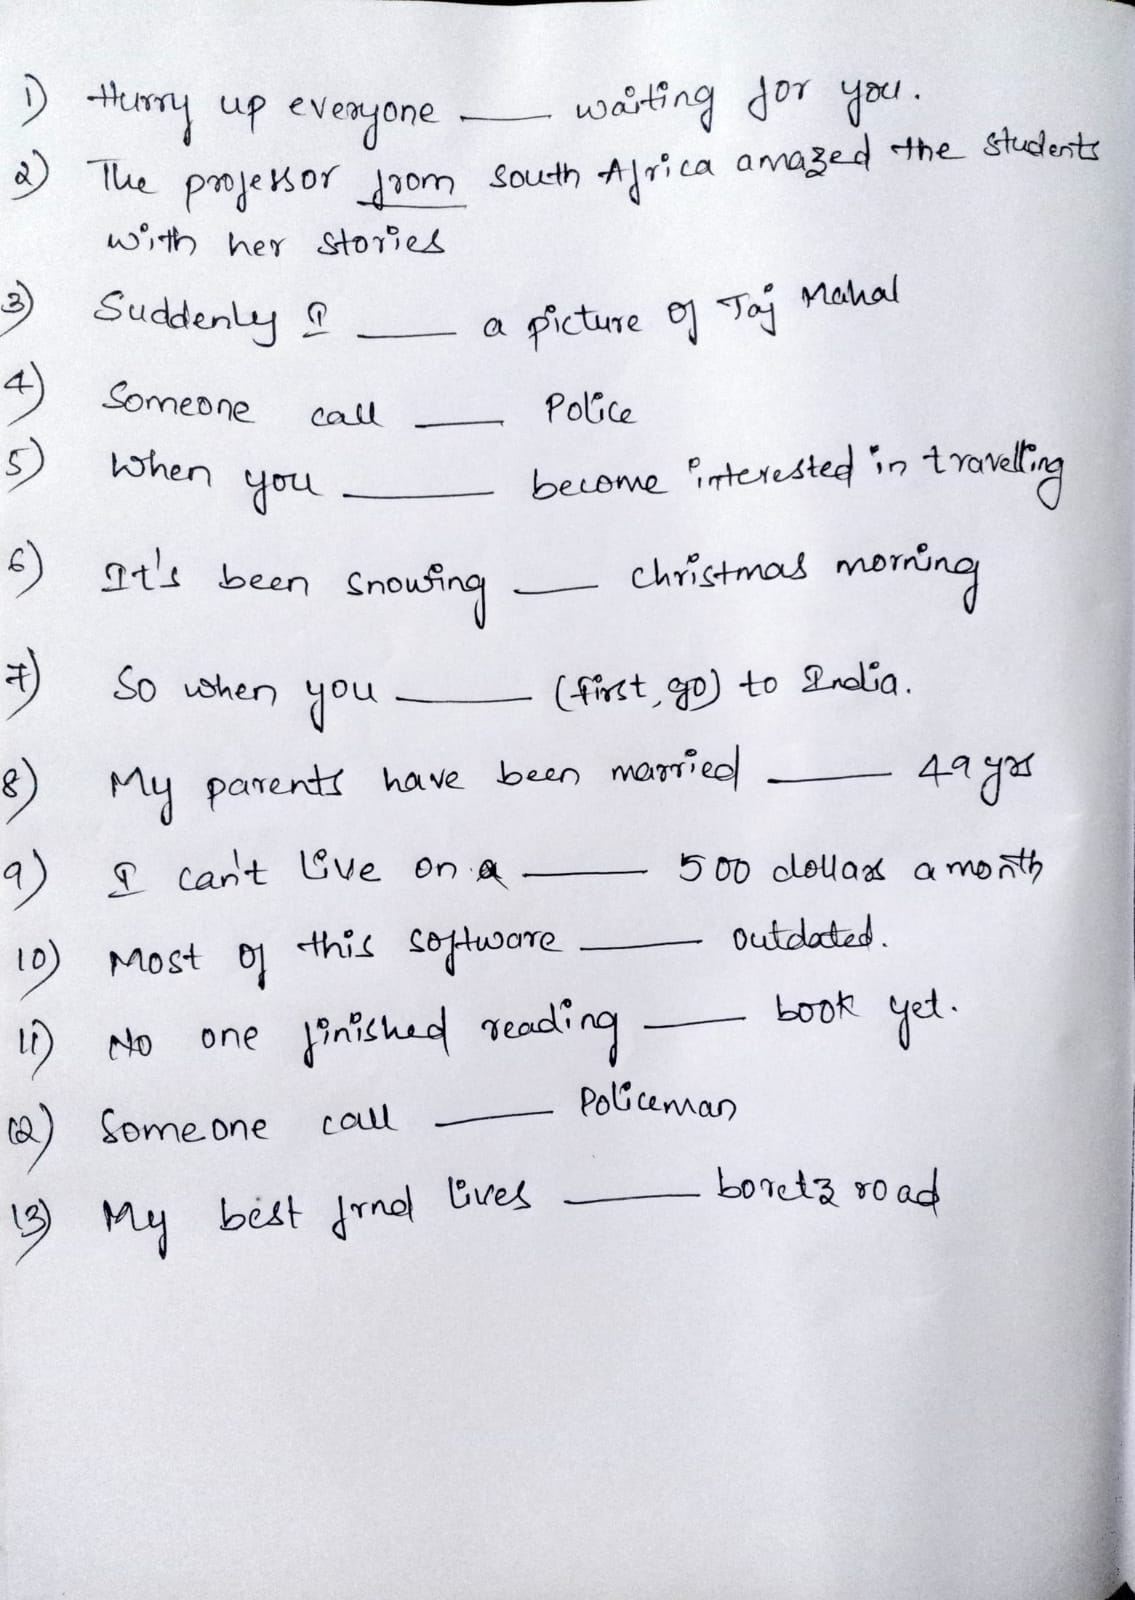 1) Hurry up everyone ___ waiting for you.
2) The professor from south Africa amazed the students
with her stories
3) Suddenly I ___ a picture of Taj Mahal
4) Someone call ___ Police
5) When you ___ become interested in travelling
6) It's been snowing ___ christmas morning
7) So when you ___ (first, go) to India.
8) My parents have been married ___ 49 yrs
9) I can't live on a ___ 500 dollars a month
10) Most of this software ___ outdated.
11) No one finished reading ___ book yet.
12) Someone call ___ Policeman
13) My best frnd lives ___ boretz road